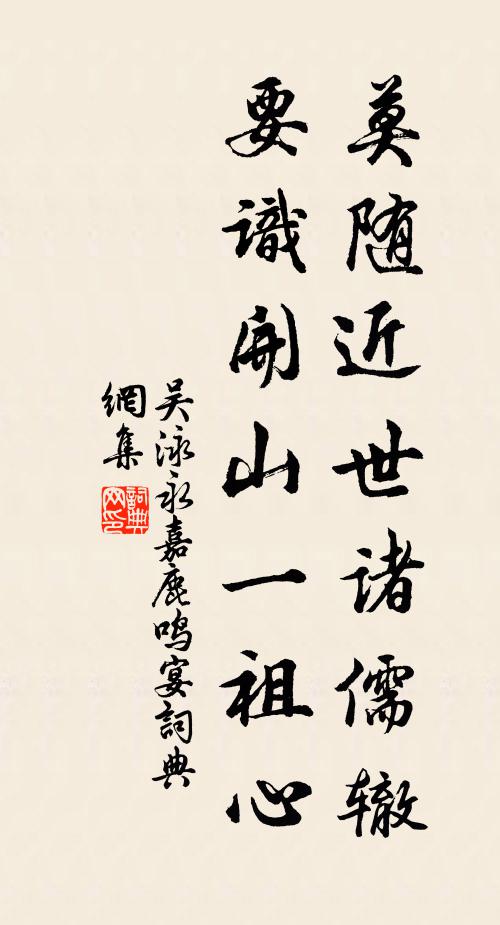 莫随近世诸儒辙
要識開山一祖心
吴泳永嘉鹿鸣宴詞典
網集
詞典
网印